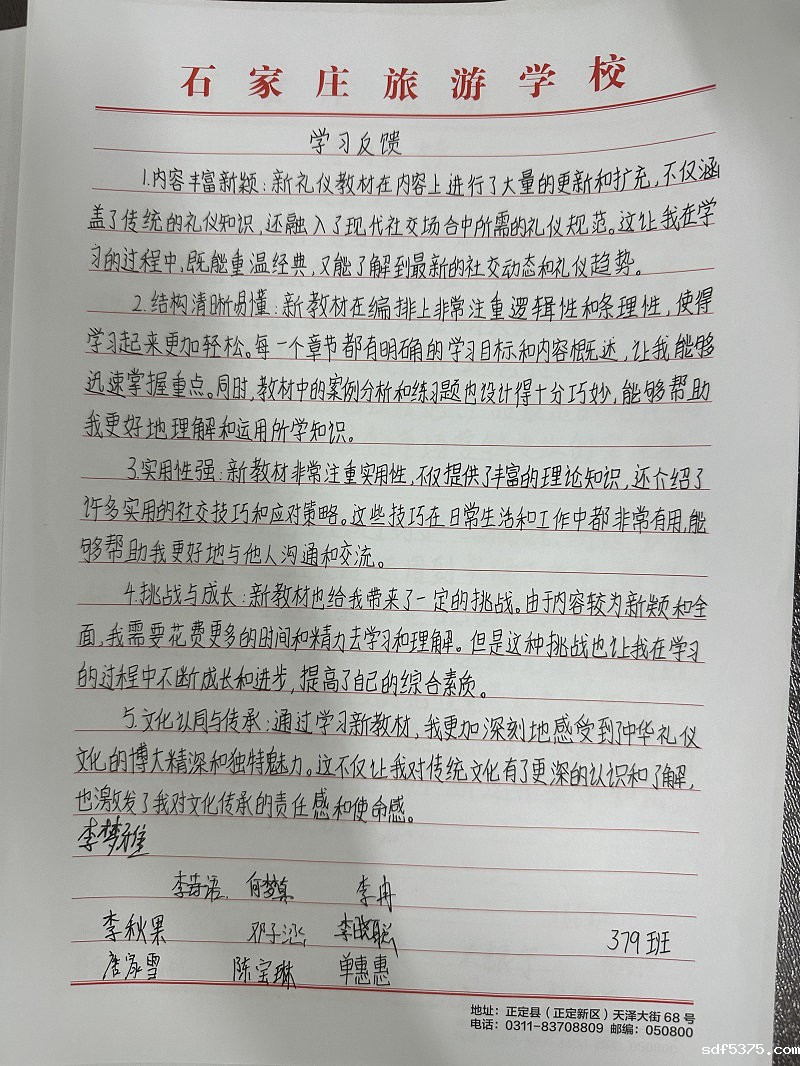 石家庄旅游学校
学习反馈
1.内容丰富新颖：新礼仪教材在内容上进行了大量的更新和扩充，不仅涵
盖了传统的礼仪知识，还融入了现代社交场合中所需的礼仪规范。这让我在学
习的过程中，既能重温经典，又能了解到最新的社交动态和礼仪趋势。
2.结构清晰易懂：新教材在编排上非常注重逻辑性和条理性，使得
学习起来更加轻松。每一个章节都有明确的学习目标和内容概述，让我能够
迅速掌握重点。同时，教材中的案例分析和练习题也设计得十分巧妙，能够帮助
我更好地理解和运用所学知识。
3.实用性强：新教材非常注重实用性，不仅提供了丰富的理论知识，还介绍了
许多实用的社交技巧和应对策略。这些技巧在日常生活和工作中都非常有用，能
够帮助我更好地与他人沟通和交流。
4.挑战与成长：新教材也给我带来了一定的挑战。由于内容较为新颖和全
面，我需要花费更多的时间和精力去学习和理解。但是这种挑战也让我在学习
的过程中不断成长和进步，提高了自己的综合素质。
5.文化认同与传承：通过学习新教材，我更加深刻地感受到了中华礼仪
文化的博大精深和独特魅力。这不仅让我对传统文化有了更深的认识和了解，
也激发了我对文化传承的责任感和使命感。
李梦雅
李诗语 何梦真 李冉
李秋果 邓子涵 李晓聪 379班
唐家雪 陈宝琳 单惠惠
地址：正定县（正定新区）天泽大街 68 号
电话：0311-83708809 邮编：050800
sdf5375.com